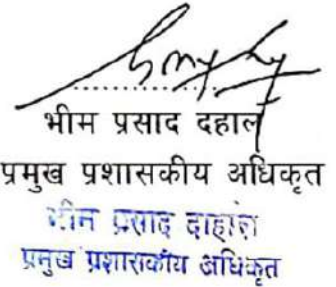 भीम प्रसाद दहाल
प्रमुख प्रशासकीय अधिकृत
भीम प्रसाद दाहाल
प्रमुख प्रशासकीय अधिकृत